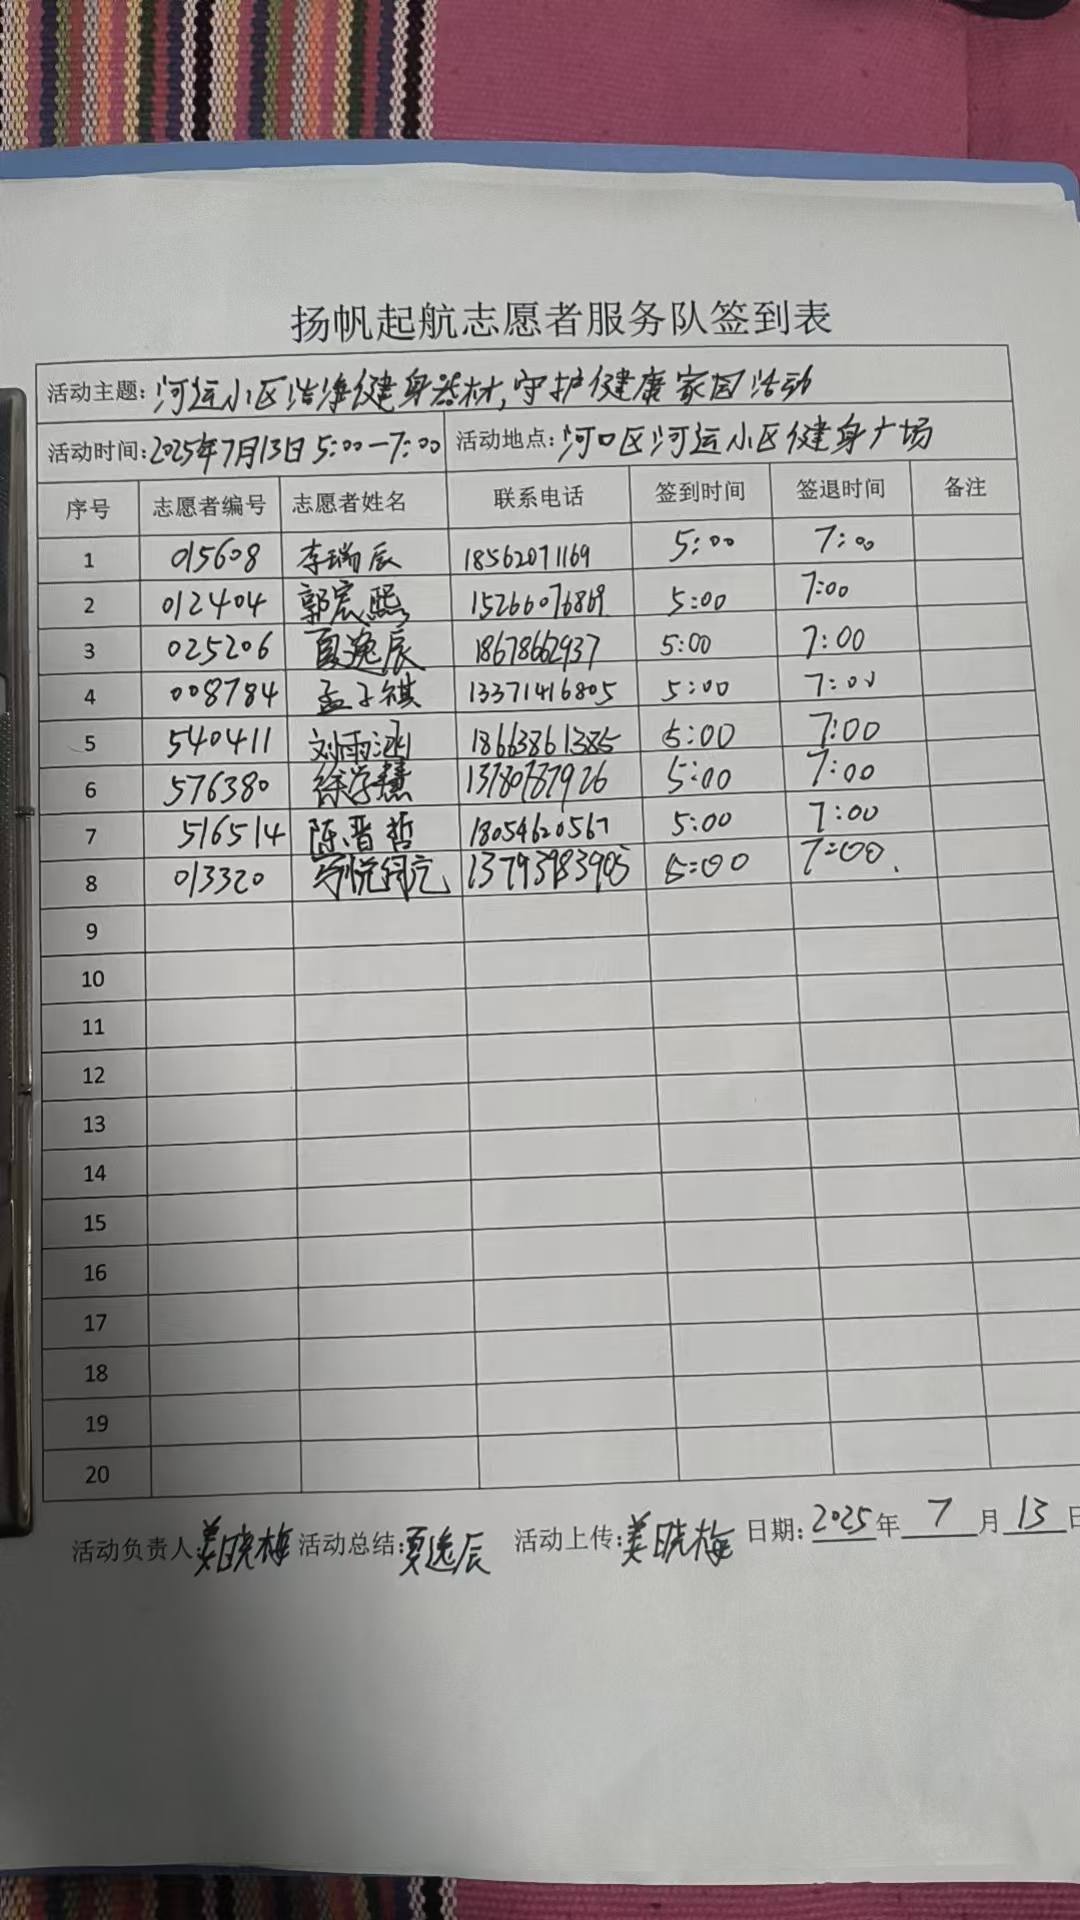 扬帆起航志愿者服务队签到表
活动主题: 河运小区洁净健身器材,守护健康家园活动
活动时间: 2025年7月13日 5:00—7:00 活动地点: 河口区河运小区健身广场
序号 志愿者编号 志愿者姓名 联系电话 签到时间 签退时间 备注
1 015608 李瑞辰 18562071169 5:00 7:00
2 012404 郭宸熙 15266076869 5:00 7:00
3 025206 夏逸辰 18678662937 5:00 7:00
4 008784 孟子祺 13371416805 5:00 7:00
5 540411 刘雨涵 18663861385 5:00 7:00
6 576380 徐学慧 13780787926 5:00 7:00
7 516514 陈晋哲 18054620567 5:00 7:00
8 013320 13793983905 5:00 7:00
9
10
11
12
13
14
15
16
17
18
19
20
活动负责人: 姜晓梅 活动总结: 夏逸辰 活动上传: 姜晓梅 日期: 2025年 7 月 13 日